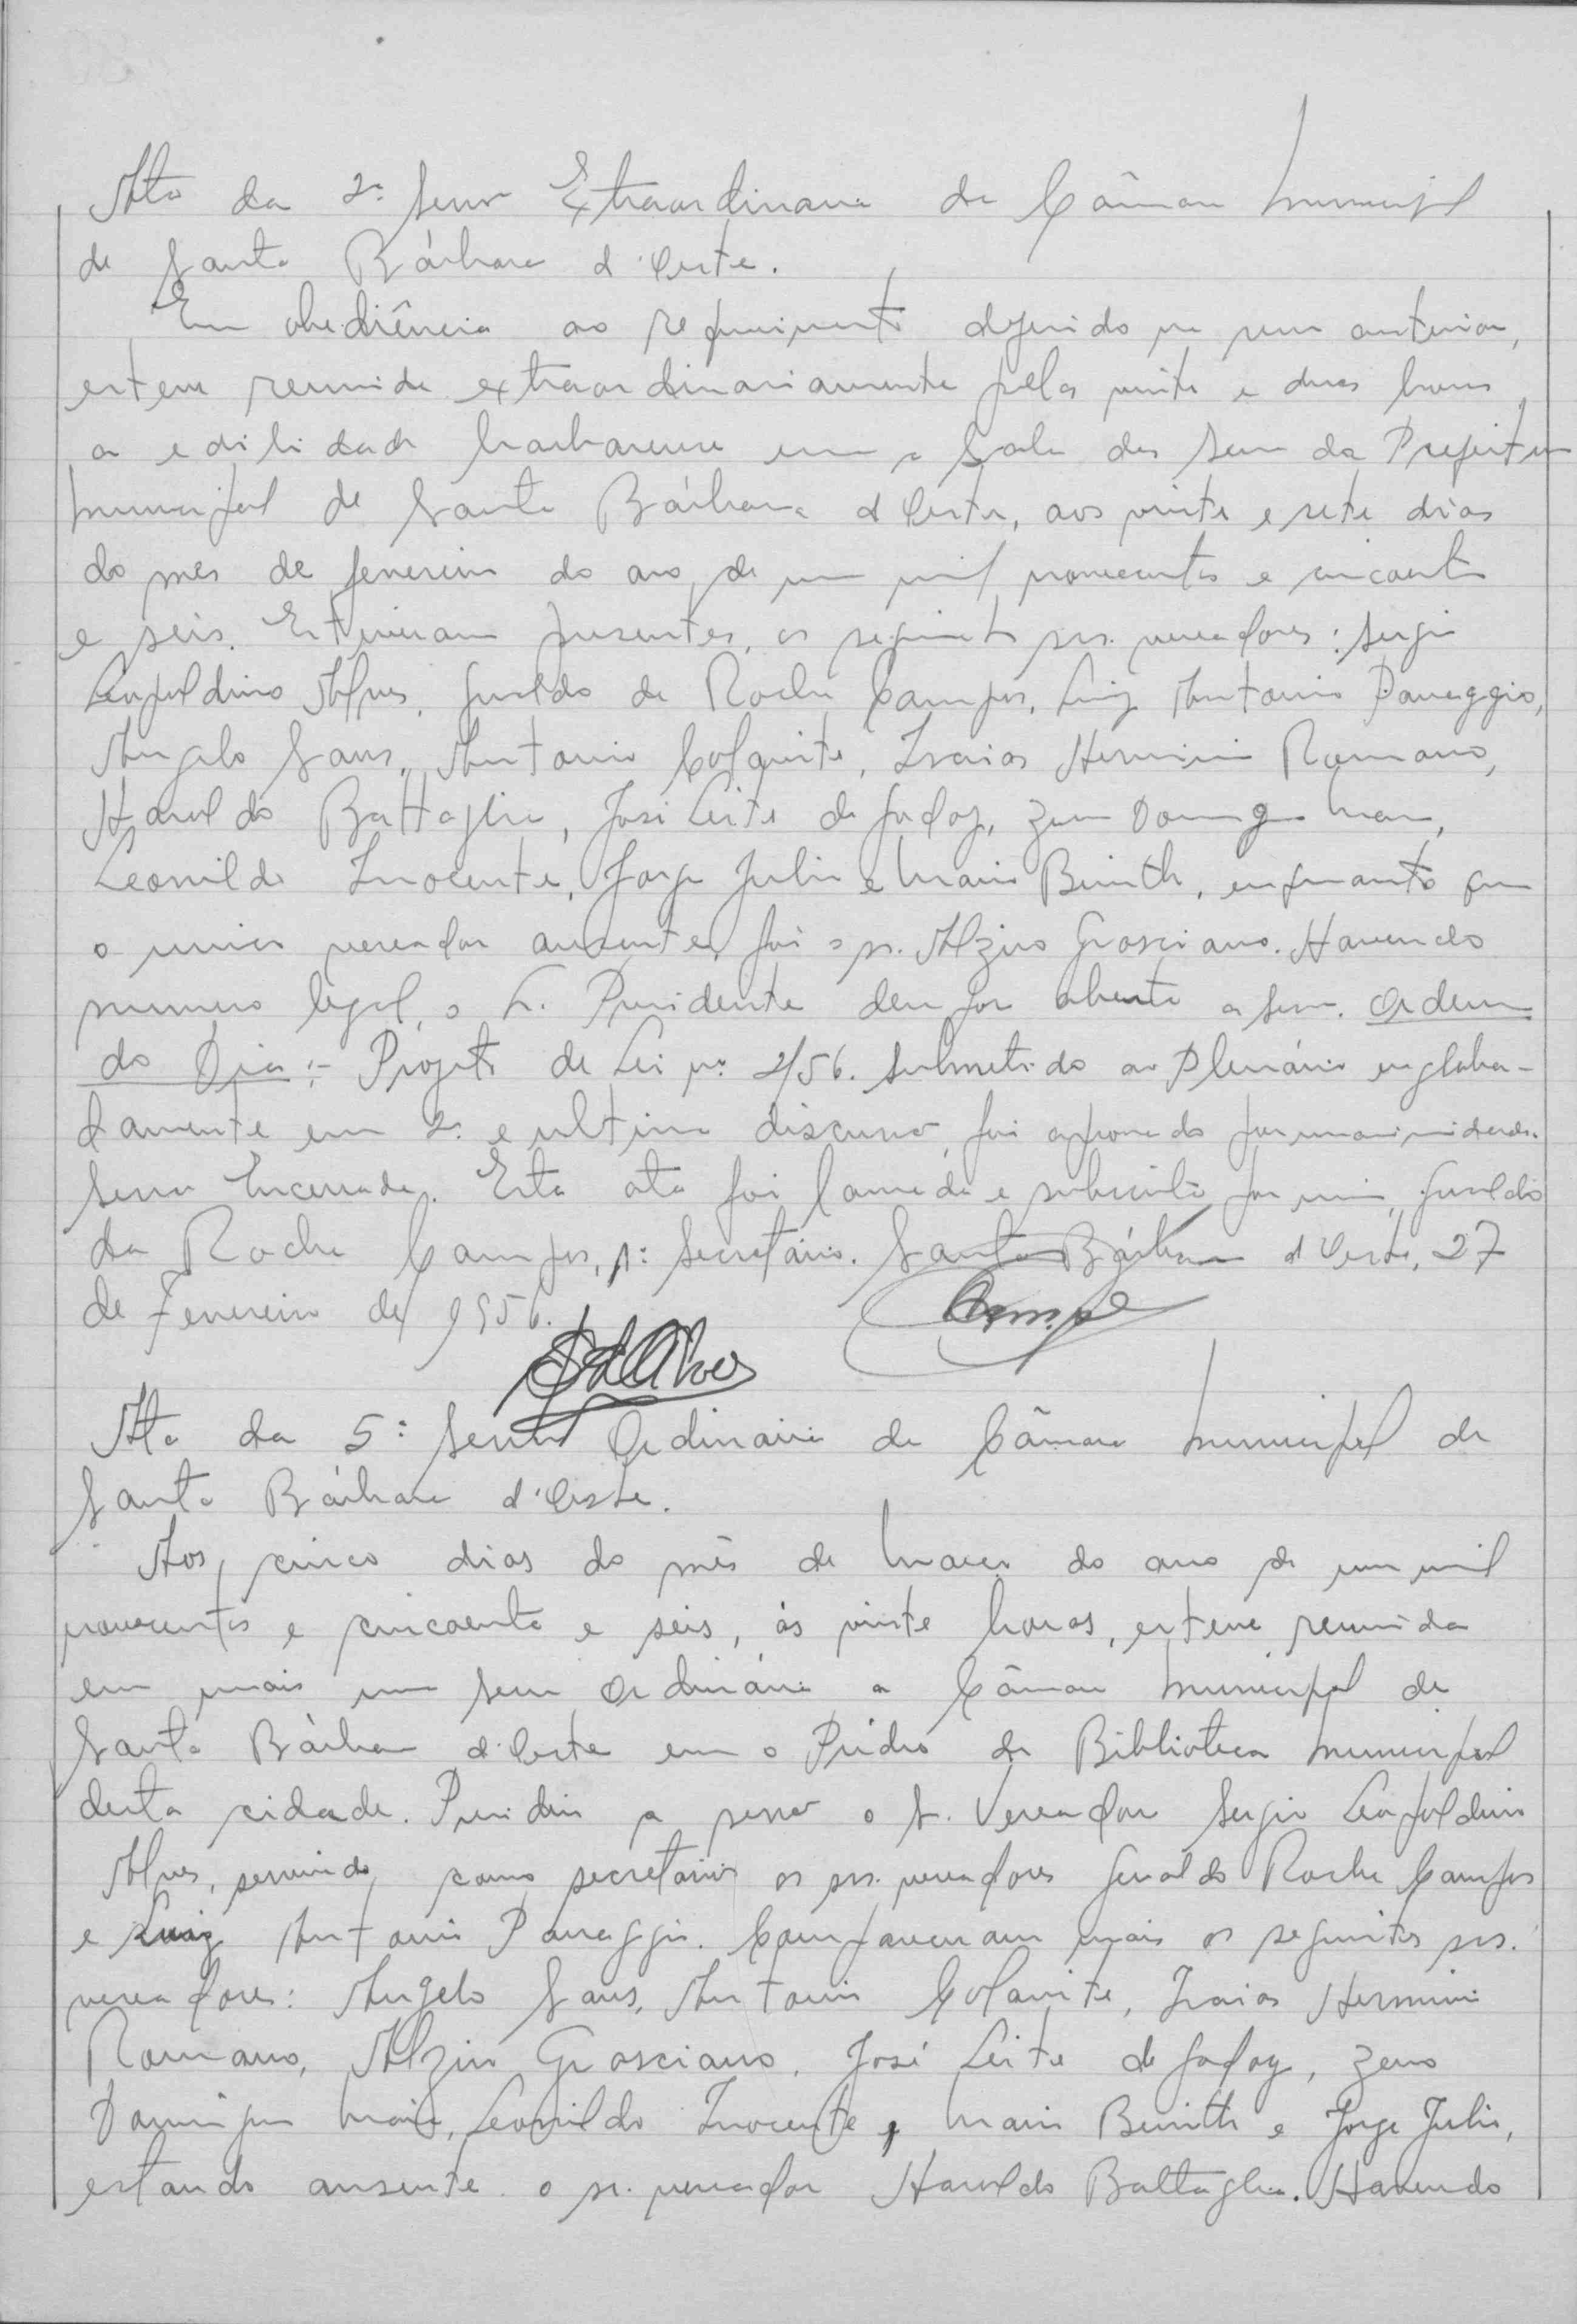 Ata da 2ª Sessão Extraordinaria da Câmara Municipal
de Santa Bárbara d'Oeste.
Em obediência ao requerimento deferido na sessão anterior,
esteve reunida extraordinariamente pelas vinte e duas horas,
a edilidade barbarense em a Sala das Sessões da Prefeitura
Municipal de Santa Bárbara d'Oeste, aos vinte e sete dias
do mes de fevereiro do ano de um mil novecentos e cincoenta
e seis. Estiveram presentes, os seguintes srs. vereadores: Sergio
Leopoldino Alves, Geraldo da Rocha Campos, Luiz Antonio Panaggio,
Angelo Sans, Antonio Colavite, Izaias Herminio Romano,
Haroldo Battaglia, José Leite de Godoy, Zeno Domingues Maia,
Leonildo Inocente, Jorge Julio e Mario Bonith, enquanto que
o unico vereador ausente, foi o sr. Alziro Grosciano. Havendo
numero legal, o Sr. Presidente deu por aberta a sessão. Ordem
do Dia:- Projeto de Lei nº 2/56. Submetido ao Plenário engloba-
damente em 2ª e ultima discussão, foi aprovado por unanimidade.
Sessão Encerrada. Esta ata foi lavrada e subscrita por mim, Geraldo
da Rocha Campos, 1º Secretário. Santa Bárbara d'Oeste, 27
de Fevereiro de 1956.
Campos
S L Alves
Ata da 5ª Sessão Ordinaria da Câmara Municipal de
Santa Bárbara d'Oeste.
Aos cinco dias do mês de Março do ano de um mil
novecentos e cincoenta e seis, ás vinte horas, esteve reunida
em mais uma Sessão Ordinária a Câmara Municipal de
Santa Bárbara d'Oeste em o Prédio da Biblioteca Municipal
desta cidade. Presidiu a sessão o Sr. Vereador Sergio Leopoldino
Alves, servindo como secretarios os srs. vereadores Geraldo Rocha Campos
e Luiz Antonio Panaggio. Compareceram mais os seguintes srs.
vereadores: Angelo Sans, Antonio Colavite, Izaias Herminio
Romano, Alziro Grosciano, José Leite de Godoy, Zeno
Domingues Maia, Leonildo Inocente, Mario Bonith e Jorge Julio,
estando ausente o sr. vereador Haroldo Battaglia. Havendo